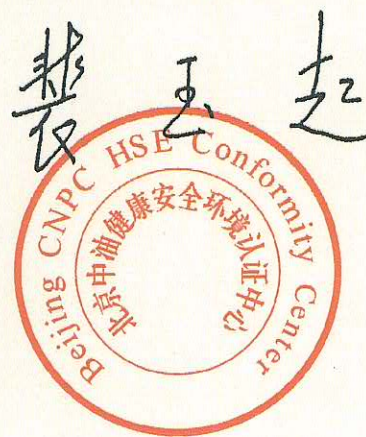 裴玉起
Beijing CNPC HSE Conformity Center
北京中油健康安全环境认证中心